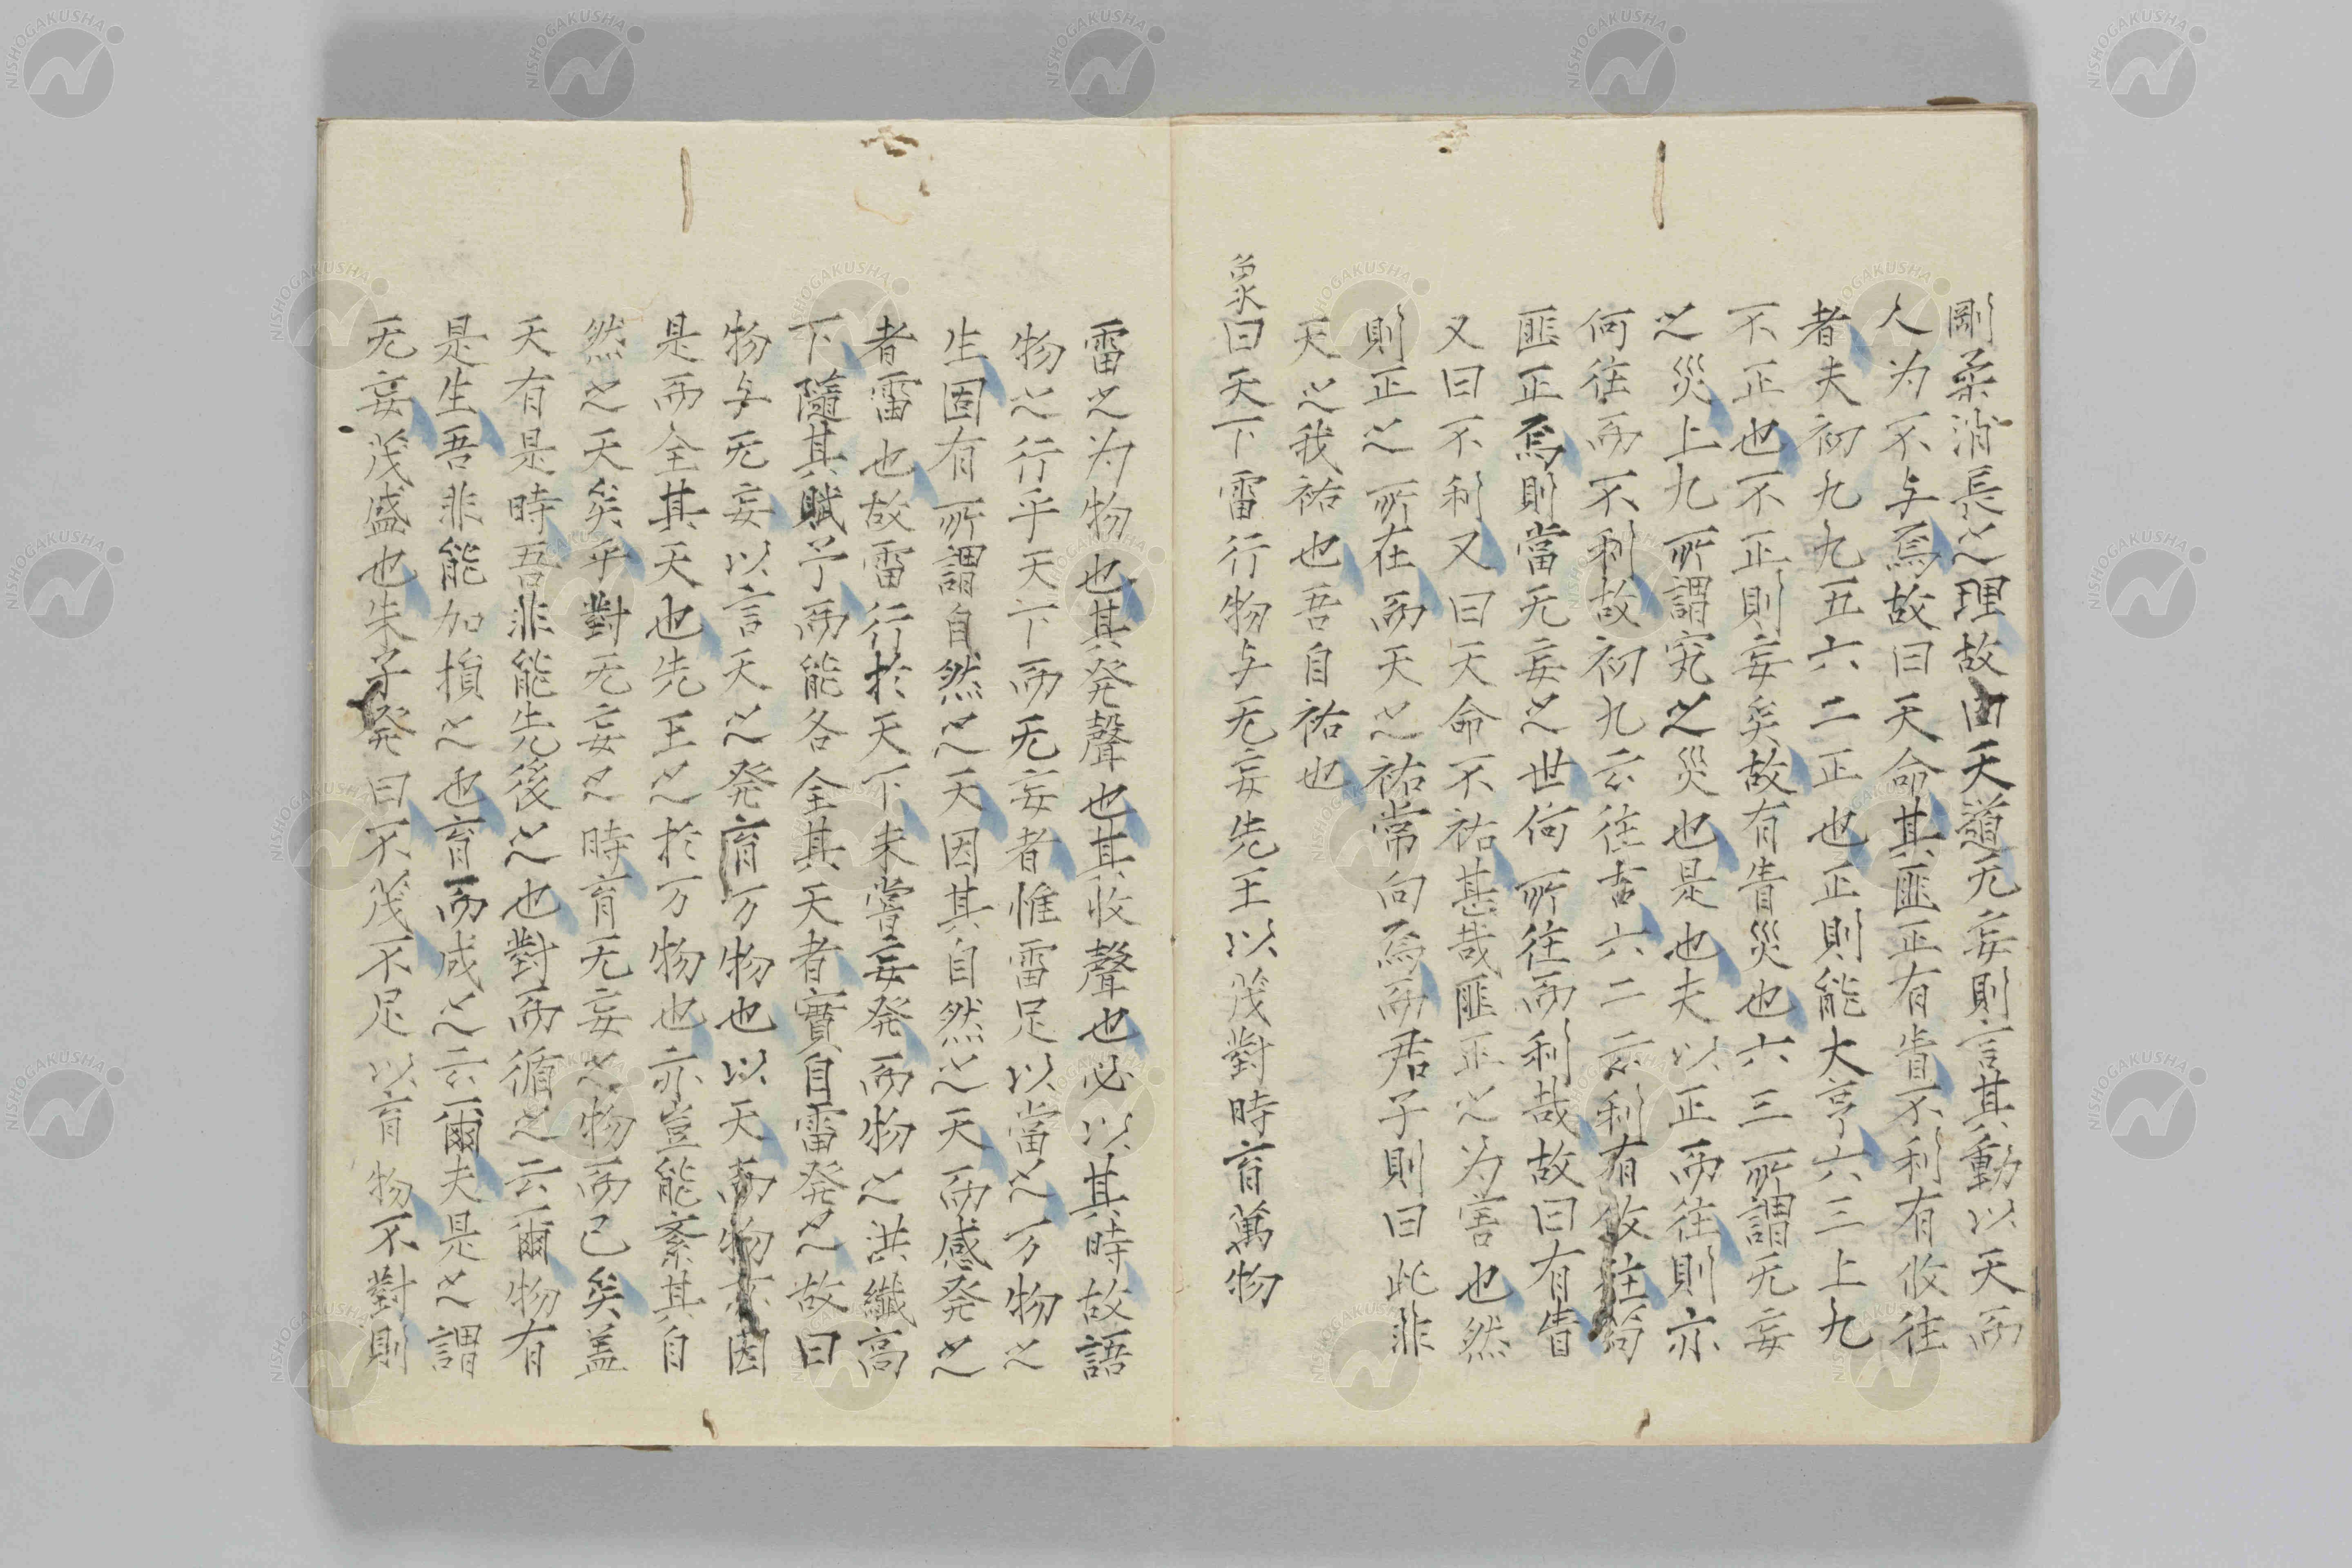 剛柔消長之理故由天道无妄則言其動以天而
人为不与焉故曰天命其匪正有眚不利有攸往
者夫初九九五六二正也正則能大亨六三上九
不正也不正則妄矣故有眚災也六三所謂无妄
之災上九所謂究之災也是也夫以正而往則亦
何往而不利故初九云往吉六二云利有攸往苟
匪正焉則當无妄之世何所往而利哉故曰有眚
又曰不利又曰天命不祐甚哉匪正之为害也然
則正之所在而天之祐常向焉而君子則曰此非
天之我祐也吾自祐也
象曰天下雷行物与无妄先王以茂對時育萬物
雷之为物也其発聲也其收聲也必以其時故語
物之行乎天下而无妄者惟雷足以當之万物之
生固有所謂自然之天因其自然之天而感発之
者雷也故雷行於天下未嘗妄発而物之洪纖高
下隨其賦予而能各全其天者實自雷発之故曰
物与无妄以言天之発育万物也以天而物亦因
是而全其天也先王之於万物也亦豈能紊其自
然之天矣乎對无妄之時育无妄之物而已矣盖
天有是時吾非能先後之也對而循之云爾物有
是生吾非能加損之也育而成之云爾夫是之謂
无妄茂盛也朱子発曰不茂不足以育物不對則
NISHOGAKUSHA